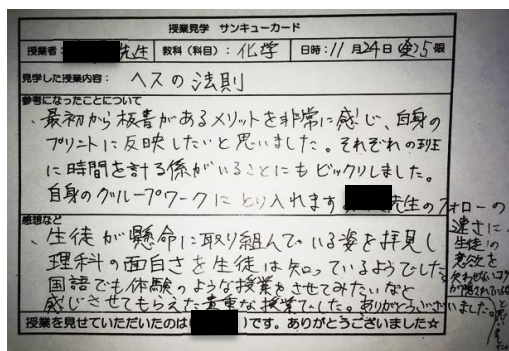 授業見学 サンキューカード
授業者: 先生 教科(科目): 化学 日時: 11月24日(金)5限
見学した授業内容: ヘスの法則
参考になったことについて
、最初から板書があるメリットを非常に感じ、自身の
プリントに反映したいと思いました。それぞれの班
に時間を計る係がいることにもビックリしました。
自身のグループワークにとり入れます 先生のフォローの
速さに、
生徒の
意欲を
失わせないコツ
が隠されている
と思いました
感想など
、生徒が懸命に取り組んでいる姿を拝見し
理科の面白さを生徒は知っているようでした。
国語でも体験のような授業をさせてみたいなと
感じさせてもらえた貴重な授業でした。ありがとうございいました。
授業を見せていただいたのは( )です。ありがとうございました☆